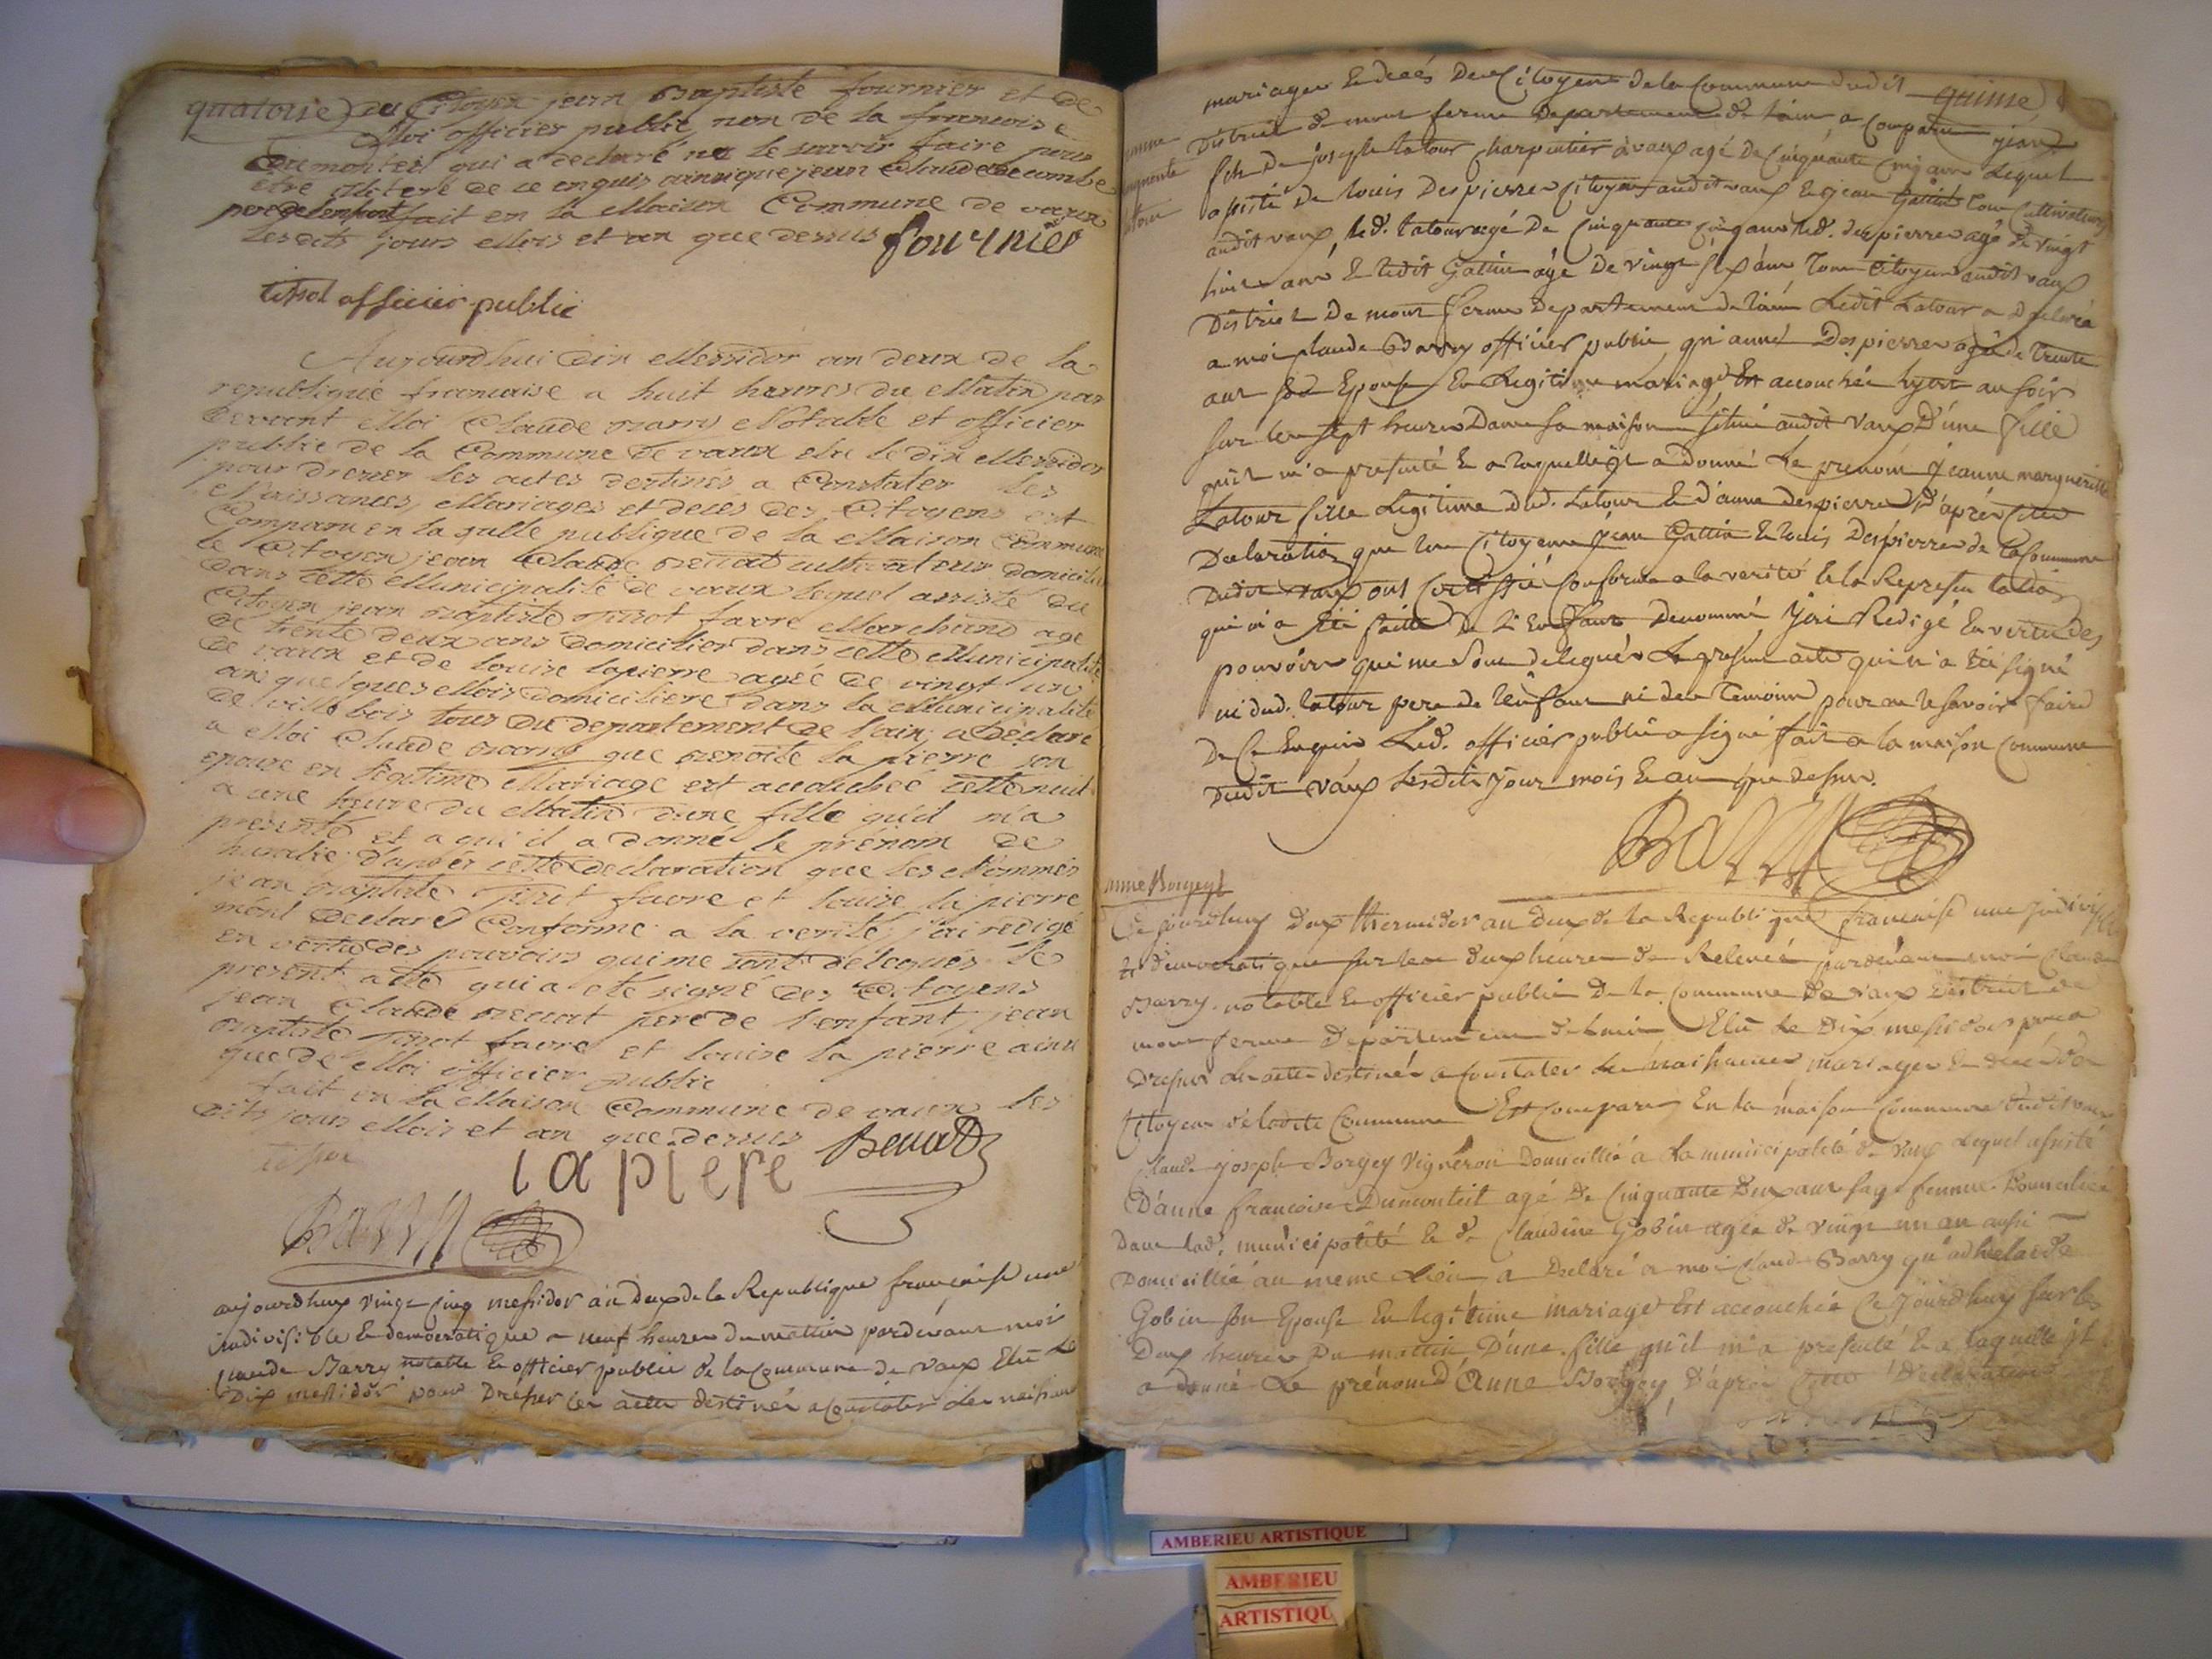 quatorze du Citoyen jean Baptiste fournier et de
Moi officier public non de la francoise
Dumonteil qui a declaré ne le savoir faire pour
etre illeteré de ce enquis ainsi que jean Claude
pere de lenfant fait en la Maison Commune de vaux
Lesdits jours Mois et an que dessus fournier
tirol officier public
Aujourdhui dix Messidor an deux de la
republique francaise a huit heures du Matin par
devant Moi Claude Barry Notable et officier
public de la Commune de vaux elu le dix Messidor
pour dresser les actes destinés a Constater les
Naissances, Mariages et decés des Citoyens est
Comparu en la salle publique de la Maison Commune
le Citoyen jean Claude Benat cultivateur domicilié
dans cette Municipalité de vaux lequel assisté du
Citoyen jean Baptiste favre Marchand agé
de trente deux ans domicilier dans cette Municipalité
de vaux et de louise lapierre agée de vingt un
an quelques Mois domiciliere dans la Municipalité
de villebois tous du departement de lain, a declaré
a Moi Claude Barry que Benoite la pierre son
epouse en legitime Mariage est accouchée cette nuit
a une heure du Matin dune fille qu'il m'a
presenté et a qui il a donné le prénom de
d'après cette declaration que les Nommés
jean Baptiste favre et louise la pierre
mont declaré Conforme a la verité, j'ai redigé
en vertu des pouvoirs qui me sont delegués le
present acte qui a eté signé des Citoyens
jean Claude Benat pere de l'enfant, jean
Baptiste favre et louise la pierre ainsi
que de Moi officier public
fait en la Maison Commune de vaux les
dits jours Mois et an que dessus Benatt
lapiere
Barry
aujourdhuy vingt cinq messidor an deux de la Republique francaise une
indivisible & democratique a neuf heures du mattin pardevant moi
claude Barry notable & officier public de la Commune de vaux Elu le
Dix messidor pour Dresser les actes destinés a Constater les naissances
mariages & decés des Citoyens de la Commune dudit quinse
District de mont ferme Departement de lain a Comparu
fils de joseph latour Charpentier a vaux agé de Cinquante Cinq ans Lequel
assisté de louis Despierres Citoyen audit vaux & jean Gallin tous Cultivateurs
audit vaux, led. latour agé De Cinquante Cinq ans led. despierres agé de vingt
huit ans & ledit Gallin agé de vingt six ans Tous Citoyens audit vaux
District De mont ferme Departement de lain Ledit Latour a Declaré
a moi plaude Barry officier public qu'anne Despierres agée de trente
ans son Epouse En Legitime mariage Est accouchée hyer au soir
sur les sept heures Dans sa maison située audit vaux D'une fille
quil m'a presenté & a laquelle il a donné Le prenom jeanne margueritte
Latour fille Legitime dud. Latour & d'anne despierres, d'après cette
Declaration que les Citoyens jean Gallin & louis Despierres de la Commune
dudit vaux ont Certiffié Conforme a la verité & la Representation
qui m'a Eté faitte De L'Enfant Denommé J'ai Redigé En vertu des
pouvoirs qui me sont delegués Le present acte qui n'a Eté signé
ni dud. latour pere de l'enfant ni des Temoins pour ne le savoir faire
De Ce Enquis Led. officier public a signé fait a la maison Commune
dudit vaux Lesdits jour mois & an que dessus.
Barry
anne Borgey
Ce jourdhuy Deux thermidor an deux de la Republique francaise une Indivisible
& democratique sur les deux heures de Relevée pardevant moi Claude
Barry notable & officier public De la Commune De vaux District de
mont ferme Departement de lain Elu Le Dix messidor pour
Dresser Les actes destinés a Constater les naissances mariages & decés des
Citoyens de ladite Commune Est Comparu En la maison Commune dudit vaux
Claude joseph Borgey Vigneron Domicillié a La municipalité de vaux Lequel assisté
D'anne francoise Dumonteit agé De Cinquante Deux ans sage femme Domiciliée
Dans lad. municipalité & de Claudine Gobin agée de vingt un an aussi
Domicillié au meme Lieu a Declaré a moi Claude Barry qu'adhelaide
Gobin son Epouse En legitime mariage Est accouchée Ce jourdhuy sur les
Deux heures Du mattin D'une fille qu'il m'a presenté & a laquelle il
a donné Le prénom D'Anne Borgey, D'après Cette Declaration
AMBERIEU ARTISTIQUE
AMBERIEU
ARTISTIQU